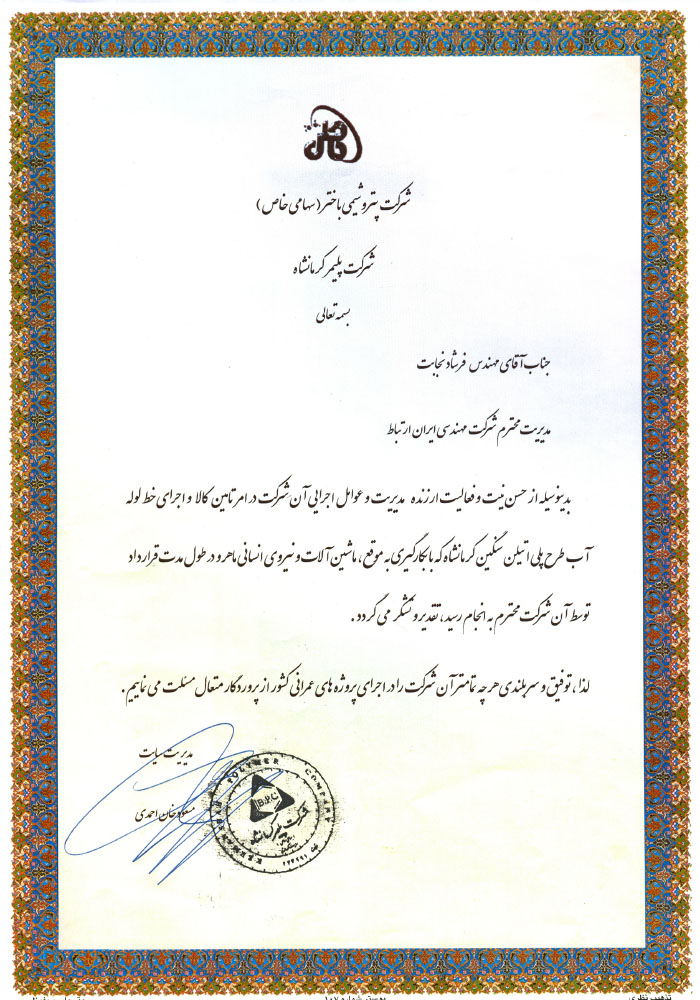 شرکت پتروشیمی باختر (سهامی خاص)
شرکت پلیمر کرمانشاه
بسمه تعالی
جناب آقای مهندس فرشاد نجابت
مدیریت محترم شرکت مهندسی ایران ارتباط
بدینوسیله از حسن نیت و فعالیت ارزنده مدیریت و عوامل اجرایی آن شرکت در امر تامین کالا و اجرای خط لوله
آب طرح پلی اتیلن سنگین کرمانشاه که با بکارگیری به موقع، ماشین آلات و نیروی انسانی ماهر و در طول مدت قرارداد
توسط آن شرکت محترم به انجام رسید، تقدیر و تشکر می گردد.
لذا، توفیق و سربلندی هرچه تمامتر آن شرکت را در اجرای پروژه های عمرانی کشور از پروردگار متعال مسئلت می نماییم.
مدیریت سایت
مسعود خان احمدی
KERMANSHAH POLYMER COMPANY
B.P.C
شرکت پلیمر کرمانشاه
تذهیب نظری
پوستر شماره ۱۰۷